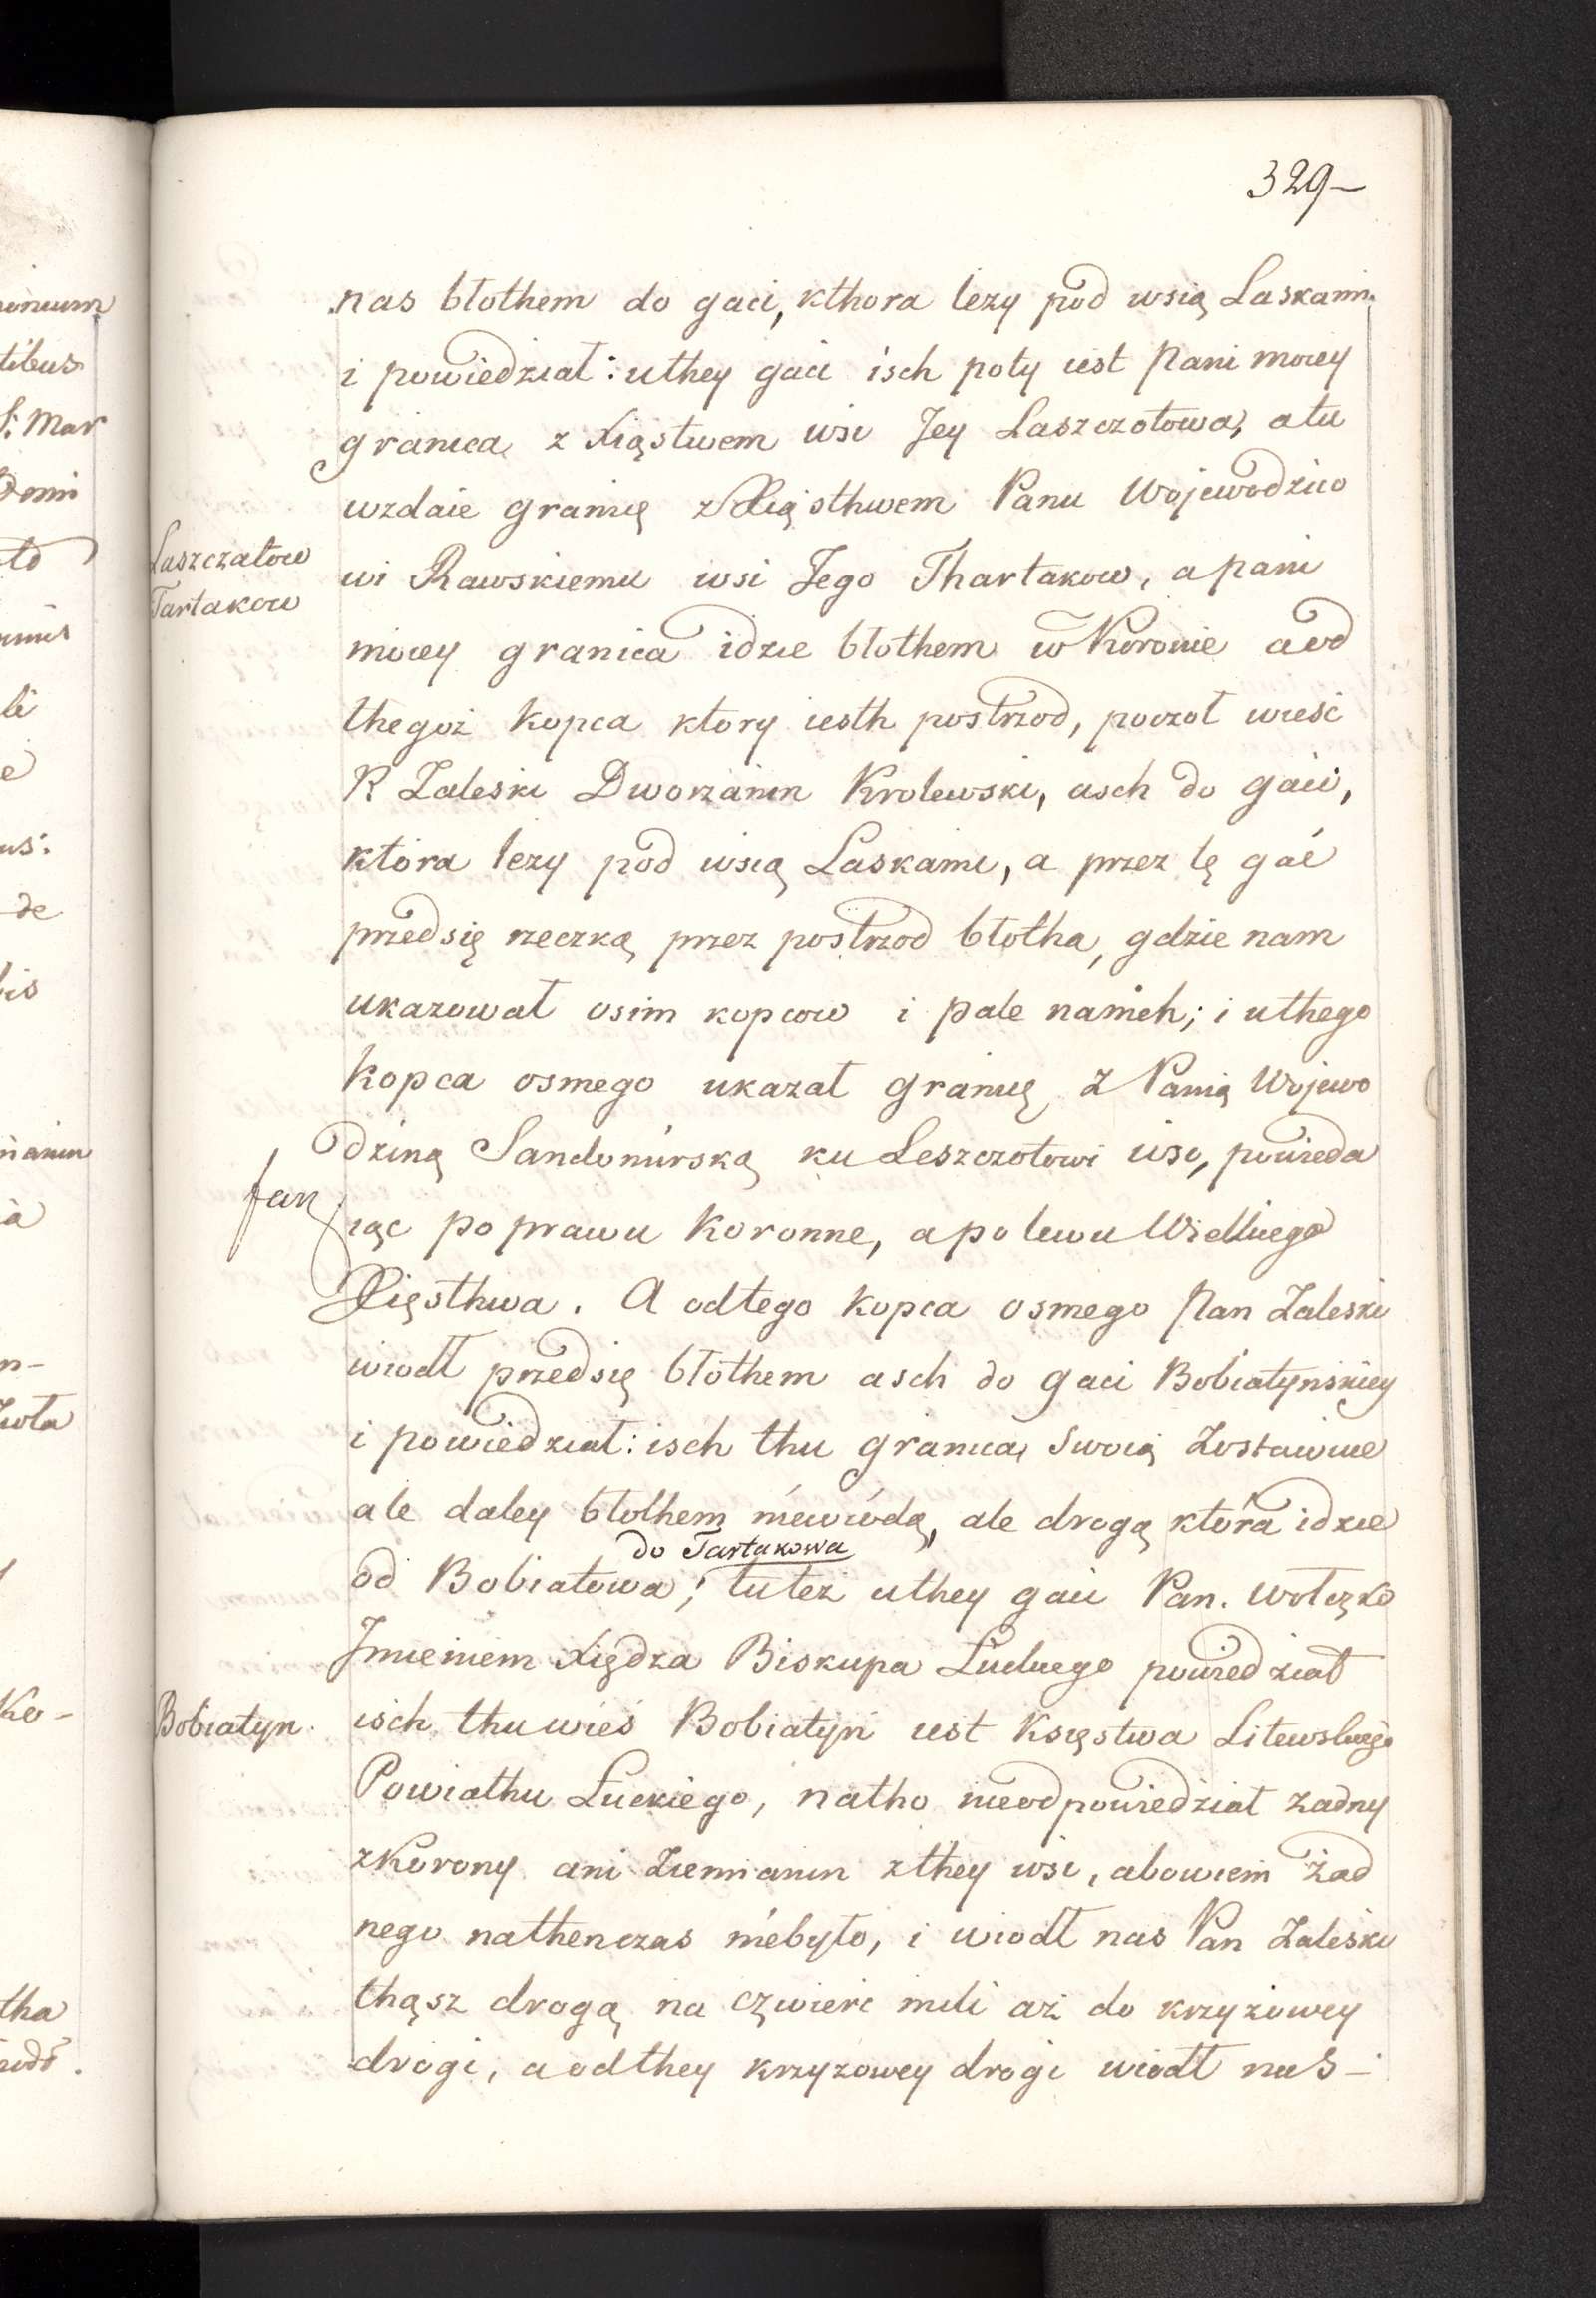 329–
nas błothem do gaci, kthora lezy pod wsią Laskami.
i powiedział: uthey gaci isch poty iest Pani moiey
granica z Xięstwem wsi Jey Laszczotowa, a tu
wzdaie granicę z Xięsthwem Panu Wojewodzico
Laszczatow
wi Rawskiemu wsi Jego Thartakow, a pani
Tartakow
moiey granica idzie błothem w Koronie a od
thegoż kopca ktory iesth postrzod, poczoł wieść
P. Zaleski Dworzanin Krolewski, asch do gaci,
ktora lezy pod wsią Laskami, a przez tę gać
przedsię rzeczką przez postrzod błotha, gdzie nam
ukazował osim kopcow i pale nanich; i uthego
kopca osmego ukazał granicę z Panią Wojewo
dziną Sandomirską ku Leszczotowi wsi, powieda
iąc po prawu Koronne, a po lewu Wielkiego
Xięsthwa. A odtego kopca osmego Pan Zaleski
wiodł przedsię błothem asch do gaci Bobiatynskiey
i powiedział: isch thu granica swoią zostawiue
ale daley błothem niewiodą, ale drogą ktora idzie
do Tartakowa
od Bobiatowa; tuteż uthey gaci Pan. Wołczko
Jmieniem Xiędza Biskupa Luckiego powiedział
Bobiatyn.
isch thu wieś Bobiatyń iest Księstwa Litewskiego
Powiathu Łuckiego, natho nieodpowiedział żadny
zKorony ani Ziemianin zthey wsi, abowiem żad
nego nathenczas niebyło, i wiodł nas Pan Zaleski
thąsz drogą na czwierć mili aż do krzyżowey
drogi, a odthey krzyzowey drogi wiodł nas –